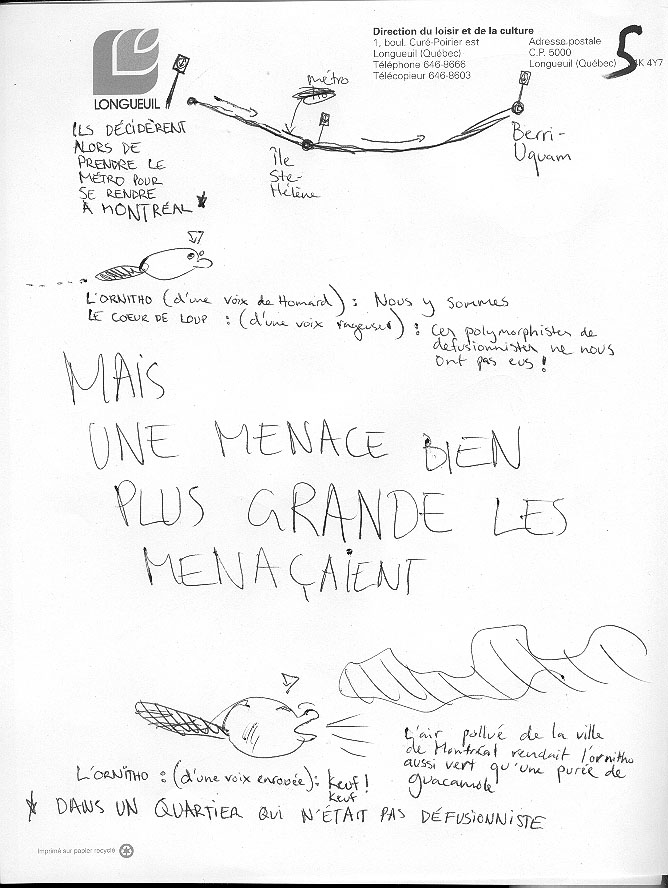 LONGUEUIL
Direction du loisir et de la culture
1, boul. Curé-Poirier est
Longueuil (Québec)
Téléphone 646-8666
Télécopieur 646-8603
Adresse postale
C.P. 5000
Longueuil (Québec)
4K 4Y7
5
ILS DÉCIDÈRENT
ALORS DE
PRENDRE LE
MÉTRO POUR
SE RENDRE
À MONTRÉAL *
métro
Île
Ste-
Hélène
Berri-
Uquam
L'ORNITHO (d'une voix de Homard) : Nous y sommes
LE COEUR DE LOUP : (d'une voix rageuse) : Ces polymorphistes de
défusionnistes ne nous
ont pas eus !
MAIS
UNE MENACE BIEN
PLUS GRANDE LES
MENAÇAIENT
L'air pollué de la ville
de Montréal rendait l'ornitho
aussi vert qu'une purée de
guacamole
L'ORNITHO : (d'une voix enrouée) : keuf !
keuf
* DANS UN QUARTIER QUI N'ÉTAIT PAS DÉFUSIONNISTE
Imprimé sur papier recyclé